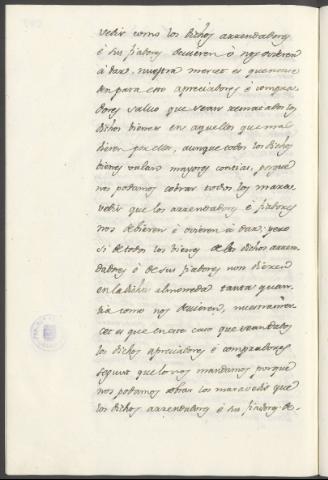 vedis como los dichos arrendadores
é sus fiadores devieren ó nos ovieren
á dar, nuestra merced es que non se
den para eso apreciadores é compra
dores salvo que sean rematados los
dichos bienes en aquellos que mas
dieren por ellos, aunque todos los dichos
bienes valan mayores contias, porque
nos podamos cobrar todos los marave
vedis que los arrendadores é fiadores
nos debieren é ovieren á dar: pero
si de todos los bienes de los dichos arren
dadores é de sus fiadores non dieren
en la dicha almoneda tanta quan
tia como nos devieren, nuestra mer
cet es que en este caso que sean dados
los dichos apreciadores é compradores
segunt que lo nos mandamos porque
nos podamos cobrar los maravedis que
los dichos arrendadores é sus fiadores de-